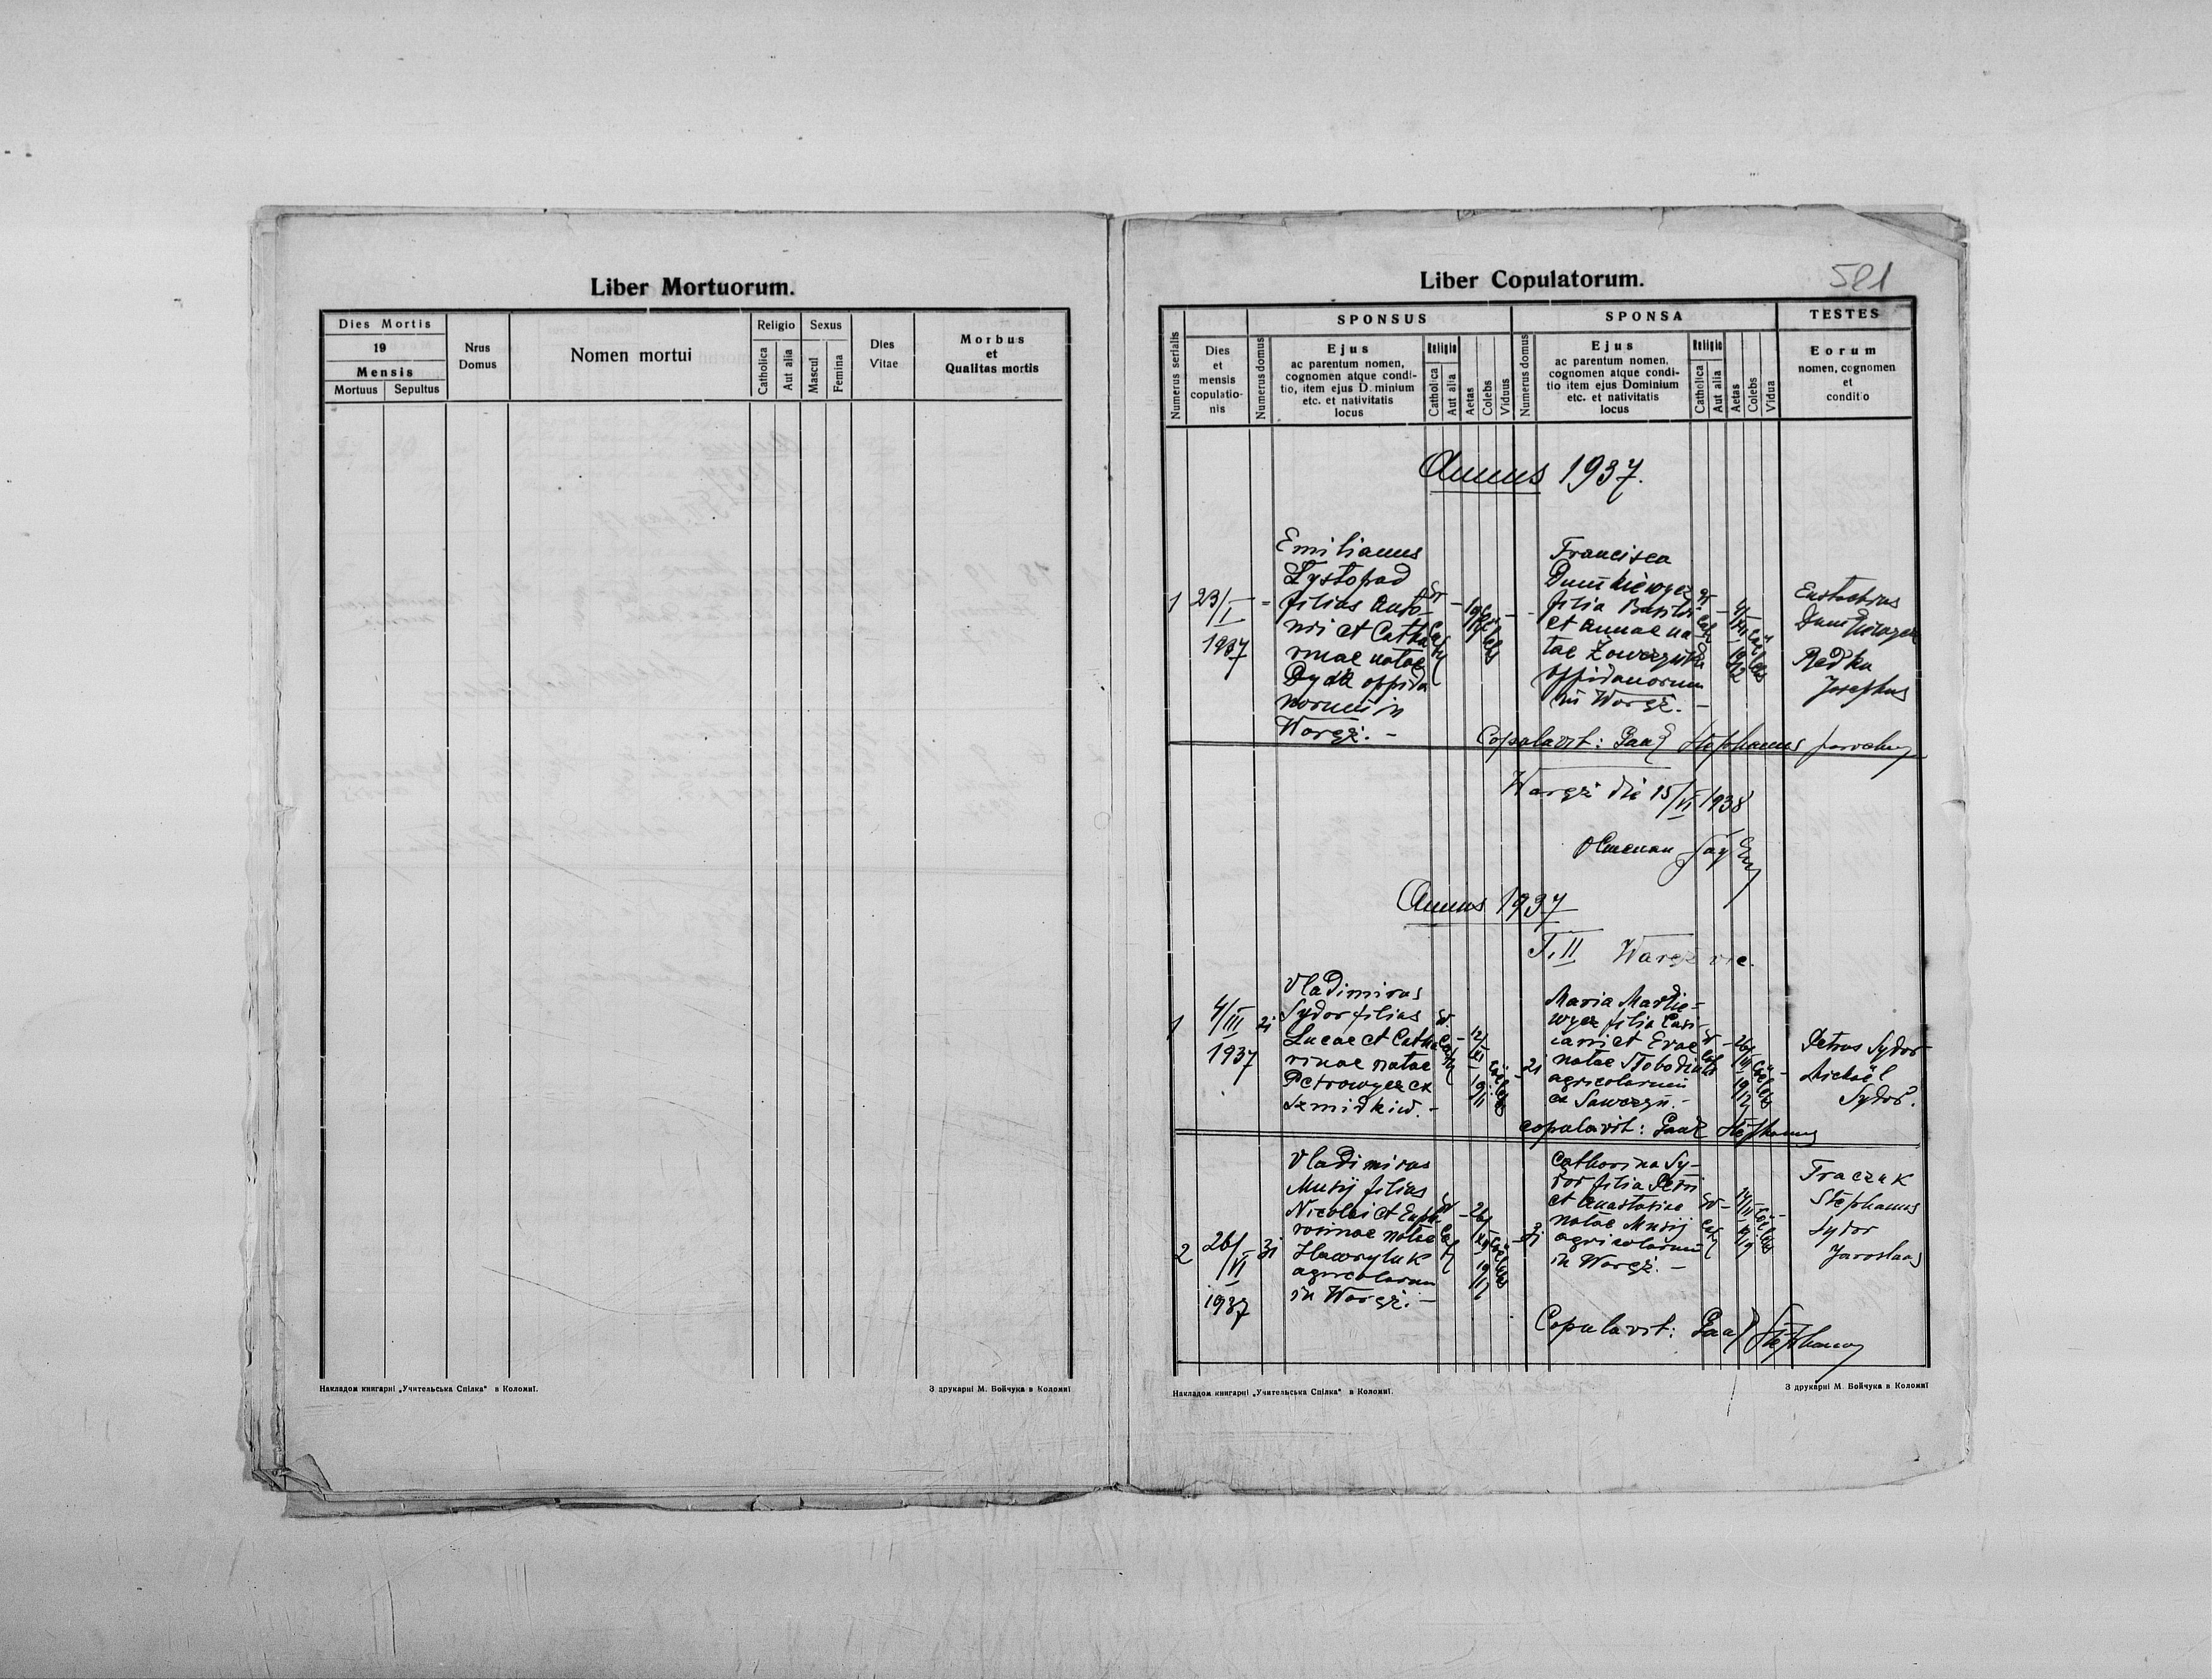 Liber Mortuorum.
Dies Mortis
19
Mensis
Mortuus
Sepultus
Nrus
Domus
Nomen mortui
Religio
Catholica
Aut alia
Sexus
Mascul
Femina
Dies
Vitae
Morbus
et
Qualitas mortis
Накладом книгарні „Учительська Спілка" в Коломиї.
З друкарні М. Бойчука в Коломиї
Liber Copulatorum.
581
Numerus serialis
Dies
et
mensis
copulatio-
nis
SPONSUS
Numerus domus
Ejus
ac parentum nomen,
cognomen atque condi-
tio, item ejus D. minium
etc. et nativitatis
locus
Religio
Catholica
Aut alia
Aetas
Colebs
Viduus
SPONSA
Numerus domus
Ejus
ac parentum nomen,
cognomen atque condi-
tio item ejus Dominium
etc. et nativitatis
locus
Religio
Catholica
Aut alia
Aetas
Colebs
Vidua
TESTES
Eorum
nomen, cognomen
et
conditio
Annus 1937.
1
23/I
1937
Emilianus
Lystopad
filius Anto-
nii et Catha
rinae natae
oppida
norum in
Waręż. -
Francisca
filia Basilii
et Annae na-
tae
oppidanorum
in Waręż. -
Eustachius
Redka
Josephus
Copulavit: Gaał Stephanus parochus
Waręż die 15/VI 1938
Annus 1937
T. II Waręż vic.
1
4/III
1937
21
Vladimirus
Sydor filius
Lucae et Catha
rinae natae
Petrowycz ex
Szmidkiw. -
21
Maria Martie-
wycz filia Casi-
et Evae
natae Słobodian
agricolarum
ex Sawczyn. -
Petrus Sydor
Michaël
Sydor.
copulavit: Gaał Stephanus
2
26/VI
1937
31
Vladimirus
Musij filius
Nicolai et Euph-
rosinae natae
Hawryluk
agricolarum
in Waręż. -
31
Catharina Sy-
dor filia Petri
et Anastasiae
natae Musij
agricolarum
in Waręż. -
Traczuk
Stephanus
Sydor
Jaroslaus
Copulavit: Gaał Stephanus
Накладом книгарні „Учительська Спілка" в Коломиї.
З друкарні М. Бойчука в Коломиї